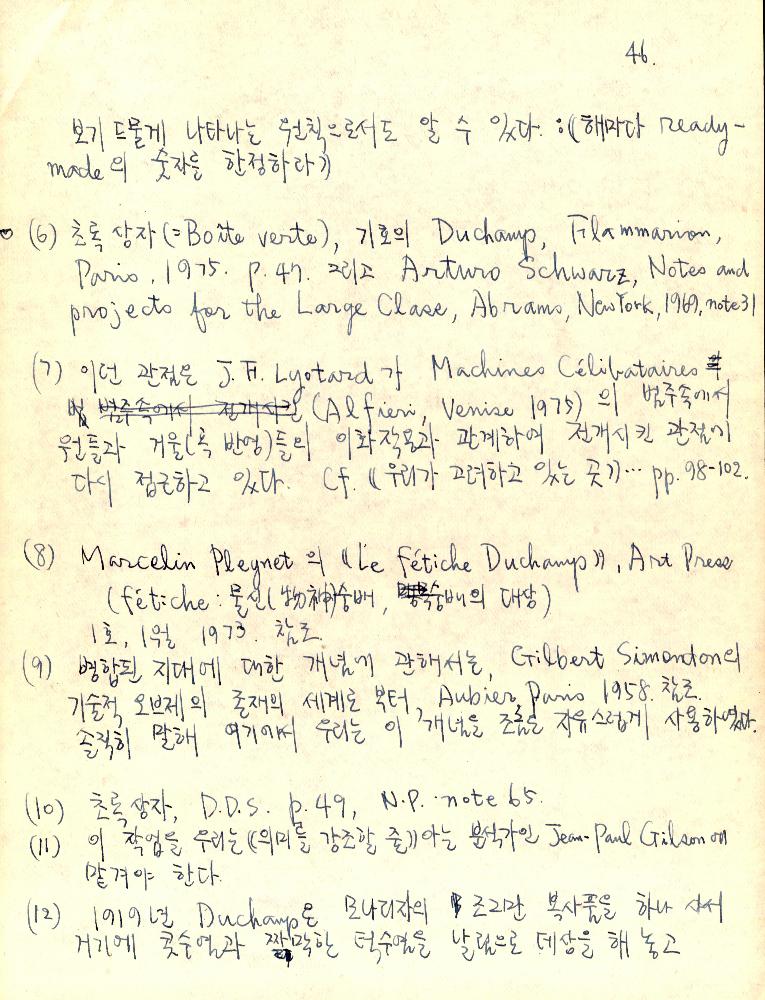 46.
보기 드물게 나타나는 원칙으로서도 알 수 있다. :《해마다 ready-
made의 숫자를 한정하라》
(6) 초록 상자(=Boîte verte), 기호의 Duchamp, Flammarion,
Paris, 1975. p.47. 그리고 Arturo Schwarz, Notes and
projects for the Large Clase, Abrams, New York, 1969, note 31
(7) 이런 관점은 J.F. Lyotard가 Machines Célibataires
(Alfieri, Venise 1975)의 범주속에서
우원들과 거울(혹 반영)들의 이화작용과 관계하여 전개시킨 관점에
다시 접근하고 있다. Cf.《우리가 고려하고 있는 곳》… pp. 98-102.
(8) Marcelin Pleynet의 《Le fétiche Duchamp》, Art Press
(fétiche : 물신(物神)숭배, 숭배의 대상)
1호, 1월 1973. 참조.
(9) 병합된 지대에 대한 개념에 관해서는, Gilbert Simondon의
기술적 오브제의 존재의 세계로 부터, Aubier, Paris 1958. 참조.
솔직히 말해 여기에서 우리는 이 개념을 조금은 자유스럽게 사용하였다.
(10) 초록상자, D.D.S. p.49, N.P. note 65.
(11) 이 작업을 우리는《의미를 강조할 줄》아는 분석가인 Jean-Paul Gilson에
맡겨야 한다.
(12) 1919년 Duchamp은 모나리자의 조그만 복사품을 하나 사서
거기에 콧수염과 짤막한 턱수염을 날림으로 데상을 해 놓고